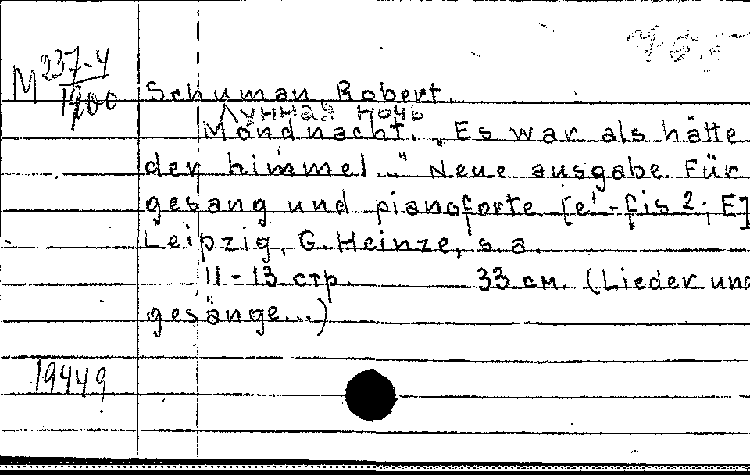 M 237-4
1900
Schuman, Robert.
Лунная ночь
Mondnacht. „Es war als hätte
der himmel..." Neue ausgabe. Für
gesang und pianoforte [e¹-fis²; E]
Leipzig, G. Heinze, s. a.
11-13 стр. 33 см. (Lieder und
gesänge...)
19449